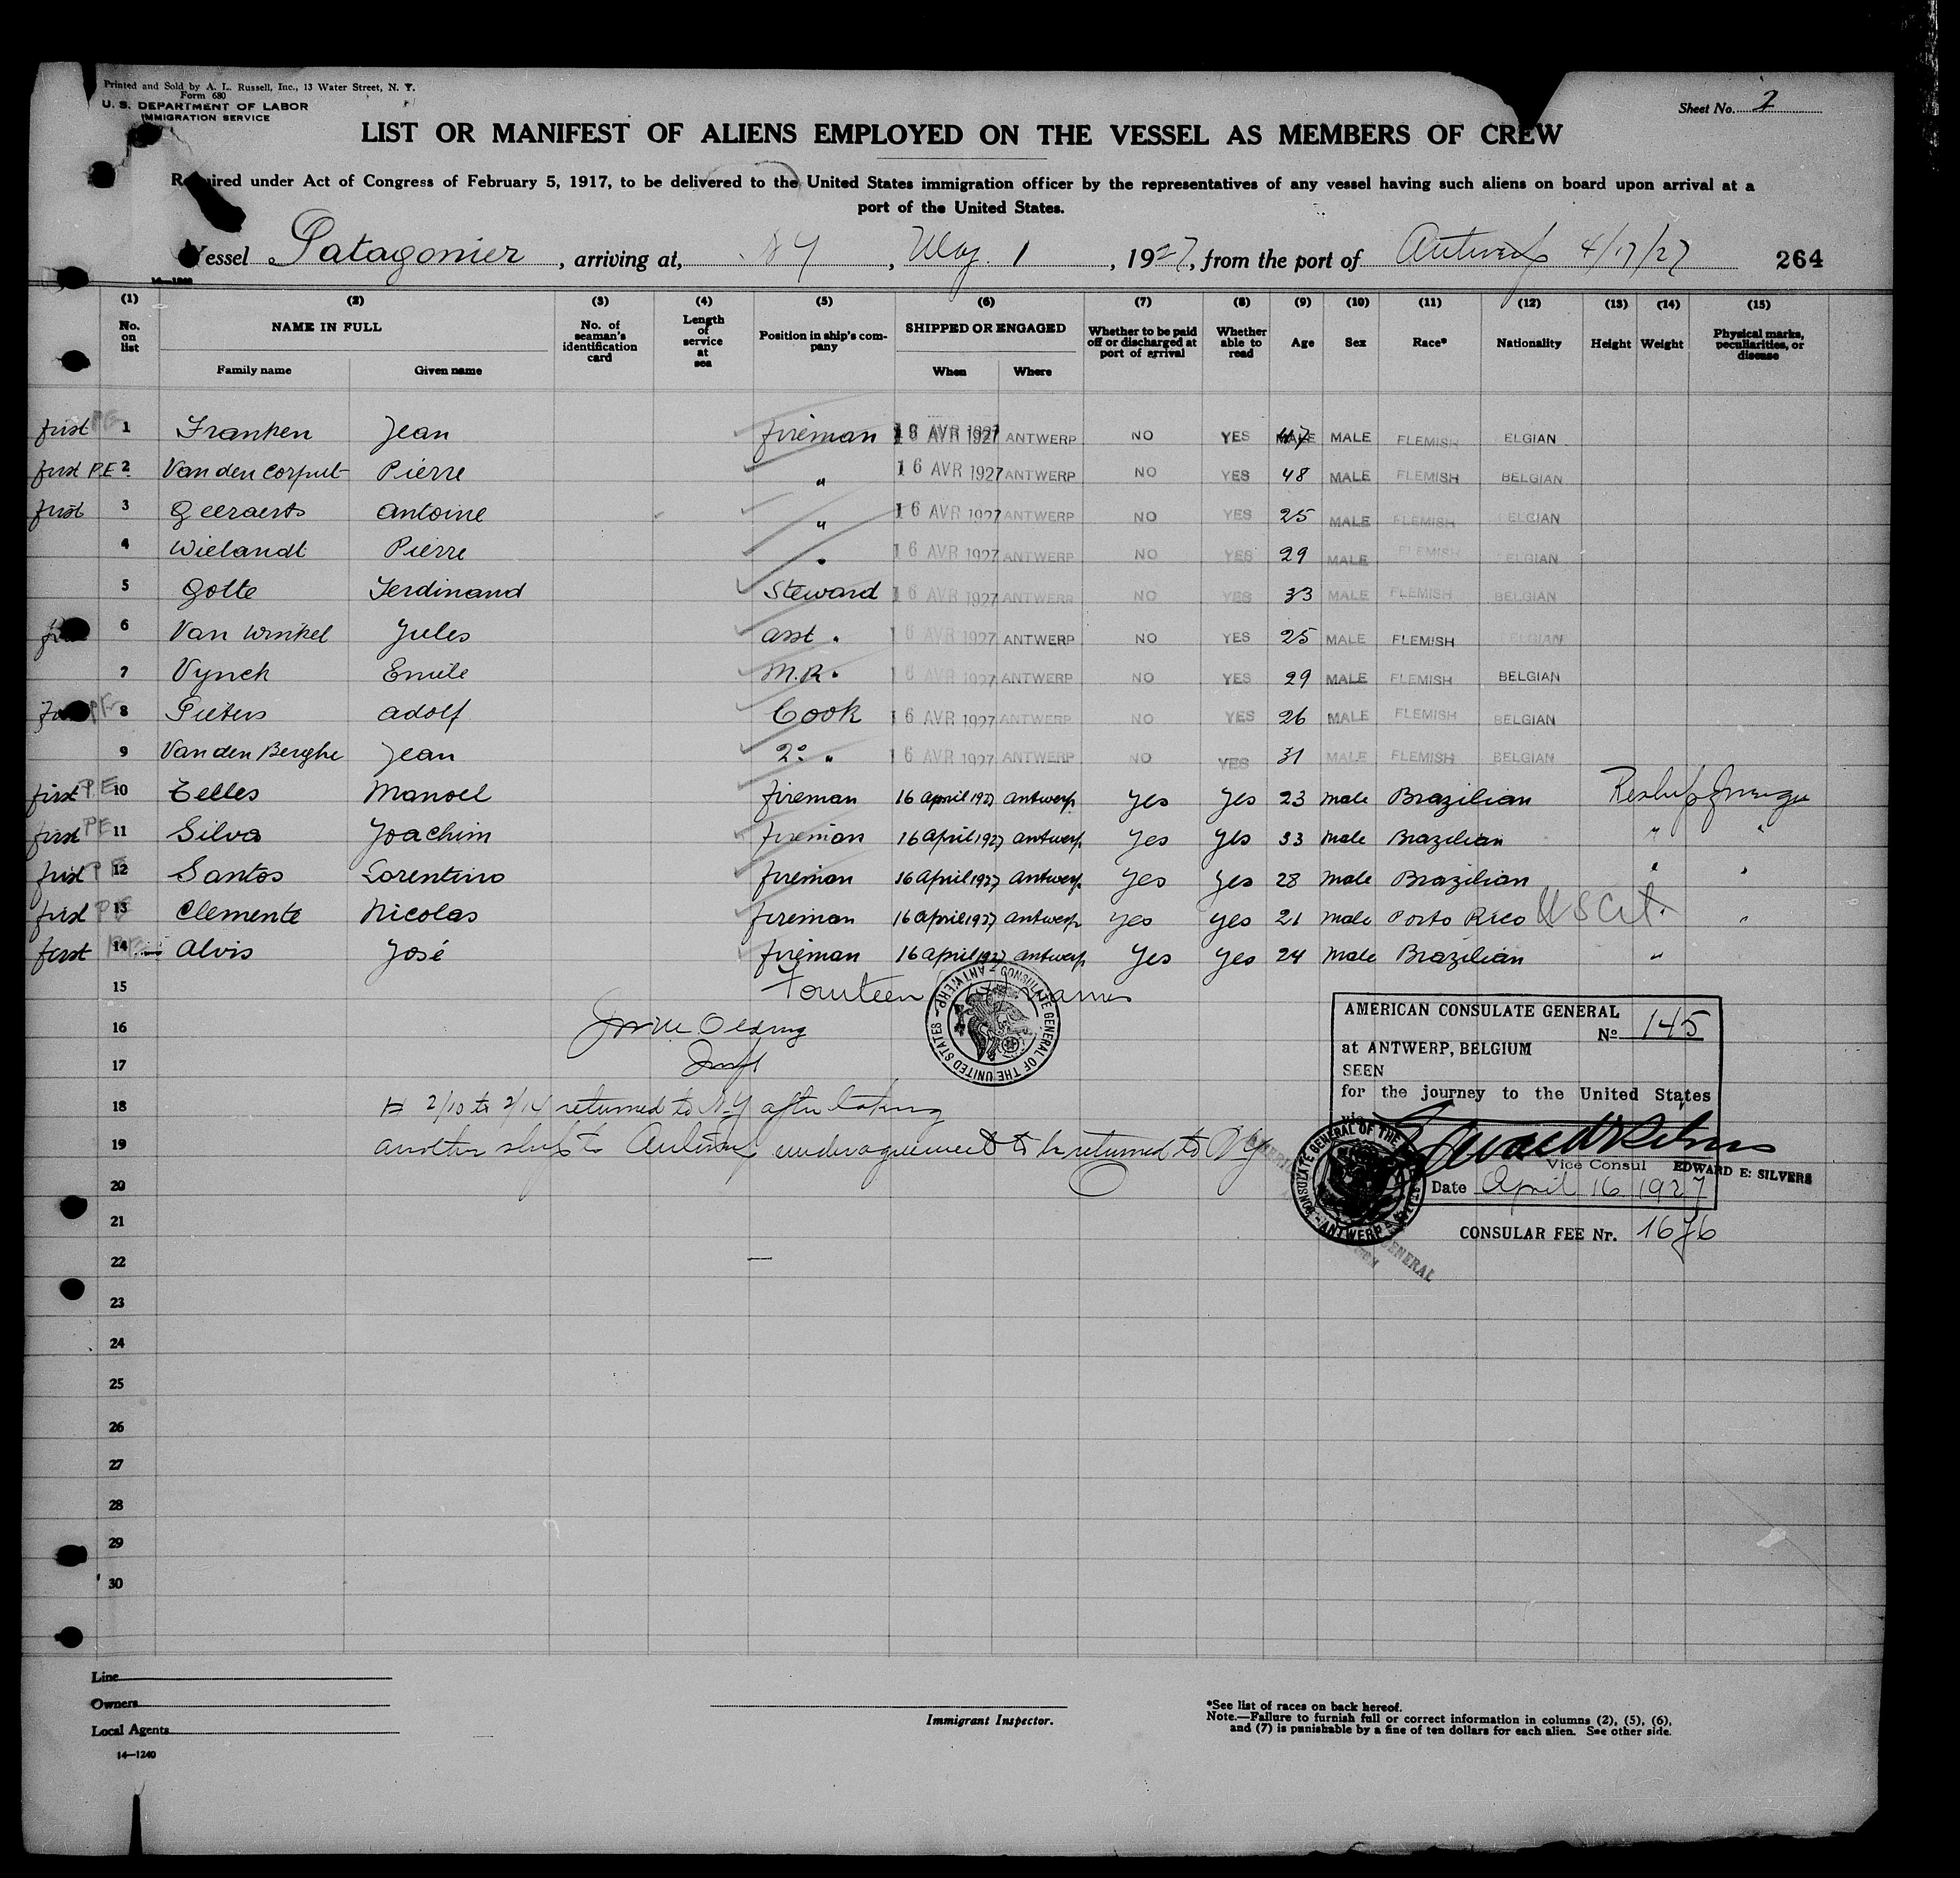 Printed and Sold by A. L. Russell, Inc., 13 Water Street, N. Y.
Form 680
U. S. DEPARTMENT OF LABOR
IMMIGRATION SERVICE
Sheet No. 2
LIST OR MANIFEST OF ALIENS EMPLOYED ON THE VESSEL AS MEMBERS OF CREW
Required under Act of Congress of February 5, 1917, to be delivered to the United States immigration officer by the representatives of any vessel having such aliens on board upon arrival at a
port of the United States.
Vessel Patagonier, arriving at, NY, May 1, 1927, from the port of Antwerp 4/17/27 264
(1) (2) (3) (4) (5) (6) (7) (8) (9) (10) (11) (12) (13) (14) (15)
No. on list NAME IN FULL Family name Given name No. of seaman's identification card Length of service at sea Position in ship's company SHIPPED OR ENGAGED When Where Whether to be paid off or discharged at port of arrival Whether able to read Age Sex Race* Nationality Height Weight Physical marks, peculiarities, or disease
first PE 1 Franken Jean fireman 16 AVR 1927 ANTWERP NO YES 47 MALE FLEMISH ELGIAN
first P.E 2 Van den Corput Pierre " 16 AVR 1927 ANTWERP NO YES 48 MALE FLEMISH BELGIAN
first 3 Geeraerts Antoine " 16 AVR 1927 ANTWERP NO YES 25 MALE FLEMISH BELGIAN
4 Wielandt Pierre " 16 AVR 1927 ANTWERP NO YES 29 MALE FLEMISH BELGIAN
5 Gotte Ferdinand Steward 16 AVR 1927 ANTWERP NO YES 33 MALE FLEMISH BELGIAN
6 Van Winkel Jules asst. " 16 AVR 1927 ANTWERP NO YES 25 MALE FLEMISH BELGIAN
7 Vynck Emile M.R. " 16 AVR 1927 ANTWERP NO YES 29 MALE FLEMISH BELGIAN
PE 8 Pieters Adolf Cook 16 AVR 1927 ANTWERP NO YES 26 MALE FLEMISH BELGIAN
9 Van den Berghe Jean 2° " 16 AVR 1927 ANTWERP NO YES 31 MALE FLEMISH BELGIAN
first P.E 10 Telles Manoel fireman 16 April 1927 Antwerp Yes Yes 23 Male Brazilian
first PE 11 Silva Joachim fireman 16 April 1927 Antwerp Yes Yes 33 Male Brazilian " "
first PE 12 Santos Lorentino fireman 16 April 1927 Antwerp Yes Yes 28 Male Brazilian " "
first PE 13 Clemente Nicolas fireman 16 April 1927 Antwerp Yes Yes 21 Male Porto Rico US Cit. "
first 14 Alvis José fireman 16 April 1927 Antwerp Yes Yes 24 Male Brazilian "
15 Fourteen names
16
17
18 2/10 to 2/14 returned to N.Y after taking
19 another ship to Antwerp under agreement to be returned to NY
20
21
22
23
24
25
26
27
28
29
30
CONSULATE GENERAL OF THE UNITED STATES - ANTWERP
AMERICAN CONSULATE GENERAL
No 145
at ANTWERP, BELGIUM
SEEN
for the journey to the United States
via
Vice Consul EDWARD E. SILVERS
Date April 16 1927
CONSULAR FEE Nr. 1676
Line
Owners
Local Agents
14—1240
Immigrant Inspector.
*See list of races on back hereof.
Note.—Failure to furnish full or correct information in columns (2), (5), (6),
and (7) is punishable by a fine of ten dollars for each alien. See other side.